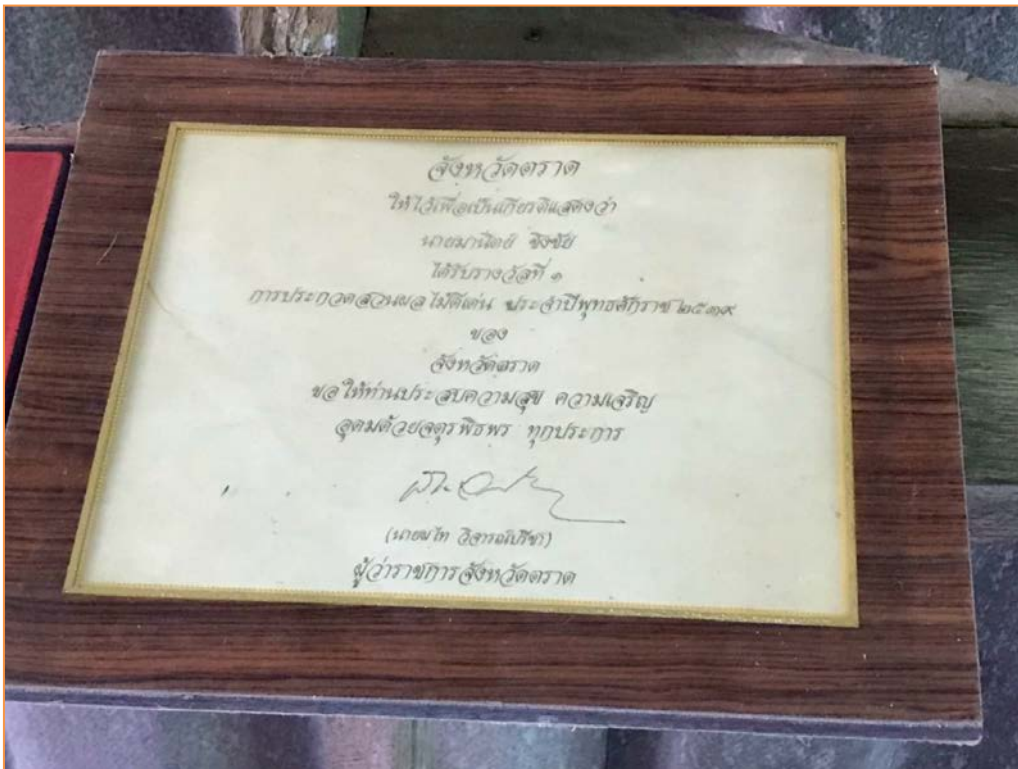 จังหวัดตราด
ให้ไว้เพื่อเป็นเกียรติแสดงว่า
นายมานิตย์
ได้รับรางวัลที่ ๑
การประกวดสวนผลไม้ดีเด่น ประจำปีพุทธศักราช ๒๕๓๙
ของ
จังหวัดตราด
ขอให้ท่านประสบความสุข ความเจริญ
อุดมด้วยจตุรพิธพร ทุกประการ
(นาย วิจารณ์ปรีชา)
ผู้ว่าราชการจังหวัดตราด